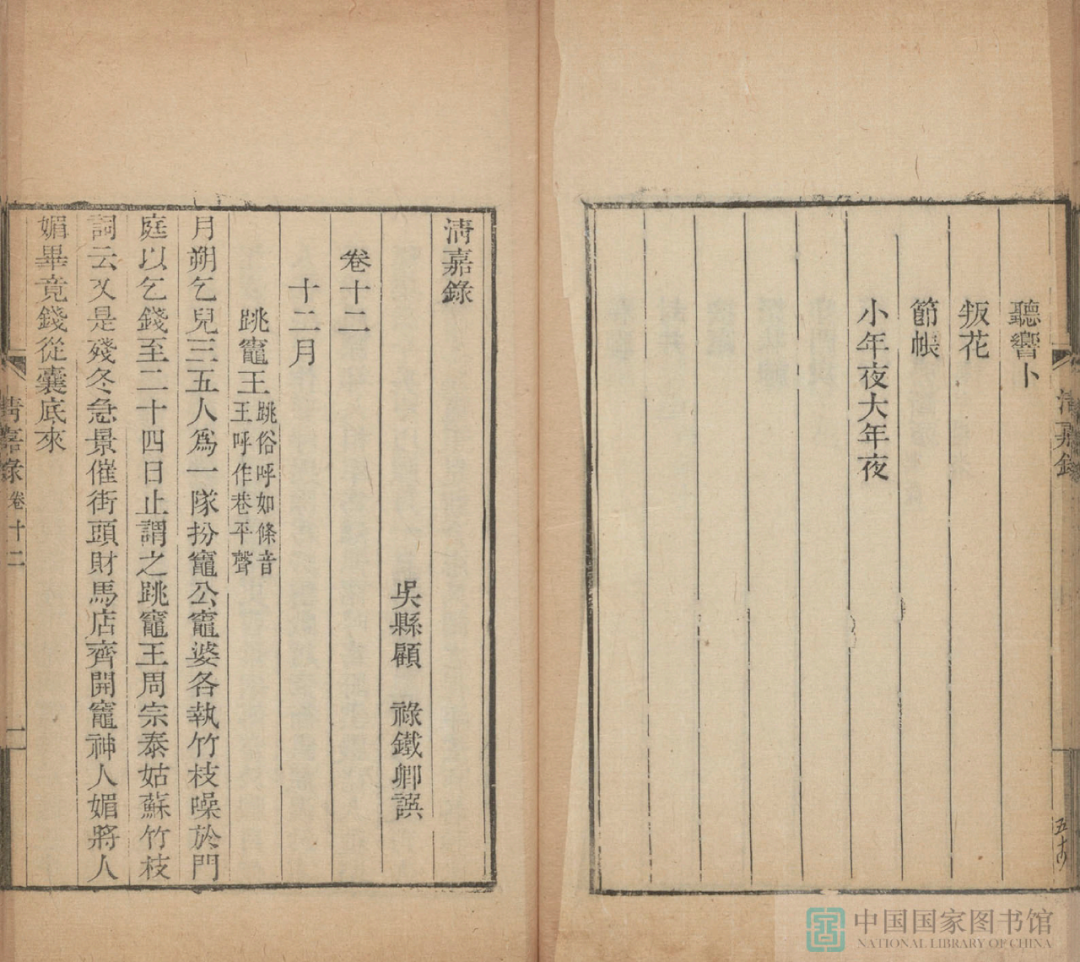 聽響卜
叛花
節帳
小年夜大年夜
清嘉錄
五十八
清嘉錄
吳縣顧 祿鐵卿譔
卷十二
十二月
跳竈王跳俗呼如條音
王呼作巷平聲
月朔乞兒三五人爲一隊扮竈公竈婆各執竹枝噪於門
庭以乞錢至二十四日止謂之跳竈王周宗泰姑蘇竹枝
詞云又是殘冬急景催街頭財馬店齊開竈神人媚將人
媚畢竟錢從囊底來
清嘉錄 卷十二 一
中国国家图书馆
NATIONAL LIBRARY OF CHINA